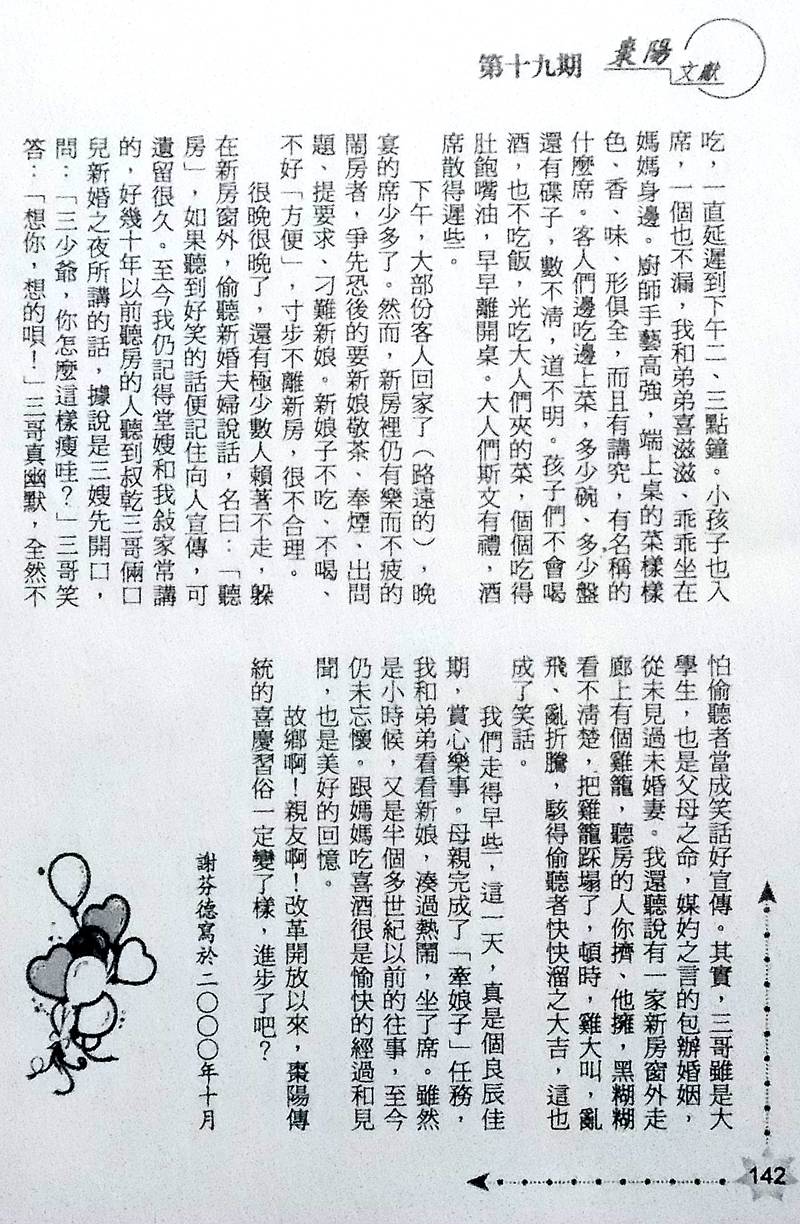 第十九期
棗陽
文獻
吃，一直延遲到下午二、三點鐘。小孩子也入
席，一個也不漏，我和弟弟喜滋滋、乖乖坐在
媽媽身邊。廚師手藝高強，端上桌的菜樣樣
色、香、味、形俱全，而且有講究，有名稱的
什麼席。客人們邊吃邊上菜，多少碗、多少盤
還有碟子，數不清，道不明。孩子們不會喝
酒，也不吃飯，光吃大人們夾的菜，個個吃得
肚飽嘴油，早早離開桌。大人們斯文有禮，酒
席散得遲些。
下午，大部份客人回家了（路遠的），晚
宴的席少多了。然而，新房裡仍有樂而不疲的
鬧房者，爭先恐後的要新娘敬茶、奉煙、出問
題、提要求、刁難新娘。新娘子不吃、不喝、
不好「方便」，寸步不離新房，很不合理。
很晚很晚了，還有極少數人賴著不走，躲
在新房窗外，偷聽新婚夫婦說話，名曰：「聽
房」，如果聽到好笑的話便記住向人宣傳，可
遺留很久。至今我仍記得堂嫂和我敍家常講
的，好幾十年以前聽房的人聽到叔乾三哥倆口
兒新婚之夜所講的話，據說是三嫂先開口，
問：「三少爺，你怎麼這樣瘦哇？」三哥笑
答：「想你，想的唄！」三哥真幽默，全然不
怕偷聽者當成笑話好宣傳。其實，三哥雖是大
學生，也是父母之命，媒妁之言的包辦婚姻，
從未見過未婚妻。我還聽說有一家新房窗外走
廊上有個雞籠，聽房的人你擠、他擁，黑糊糊
看不清楚，把雞籠踩塌了，頓時，雞大叫，亂
飛、亂折騰，駭得偷聽者快快溜之大吉，這也
成了笑話。
我們走得早些，這一天，真是個良辰佳
期，賞心樂事。母親完成了「牽娘子」任務，
我和弟弟看看新娘，湊過熱鬧，坐了席。雖然
是小時候，又是半個多世紀以前的往事，至今
仍未忘懷。跟媽媽吃喜酒很是愉快的經過和見
聞，也是美好的回憶。
故鄉啊！親友啊！改革開放以來，棗陽傳
統的喜慶習俗一定變了樣，進步了吧？
謝芬德寫於二〇〇〇年十月
142